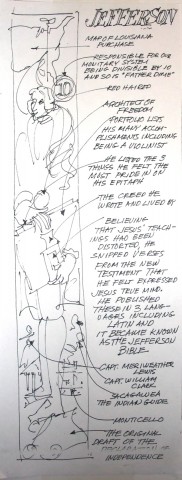 JEFFERSON
MAP OF LOUISIANA
PURCHASE
RESPONSIBLE FOR OUR
MONITARY SYSTEM
BEING DIVISIBLE BY 10
AND SO IS "FATHER DIME"
10
RED HAIRED
ARCHITECT OF
FREEDOM
PORTFOLIO LISTS
HIS MANY ACCOM-
PLISHMENTS INCLUDING
BEING A VIOLINIST
HE LISTED THE 3
THINGS HE FELT THE
MOST PRIDE IN ON
HIS EPITAPH
THE CREED HE
WROTE AND LIVED BY
BELIEVING
THAT JESUS' TEACH-
INGS HAD BEEN
DISTORTED, HE
SNIPPED VERSES
FROM THE NEW
TESTIMENT THAT
HE FELT EXPRESSED
JESUS TRUE MIND.
HE PUBLISHED
THESE IN 3 LANG-
UAGES INCLUDING
LATIN AND
IT BECAME KNOWN
AS THE JEFFERSON
BIBLE.
CAPT. MERIWEATHER
LEWIS
CAPT. WILLIAM
CLARK
SACAGAWEA
THE INDIAN GUIDE
MONTICELLO
THE ORIGINAL
DRAFT OF THE
INDEPENDENCE